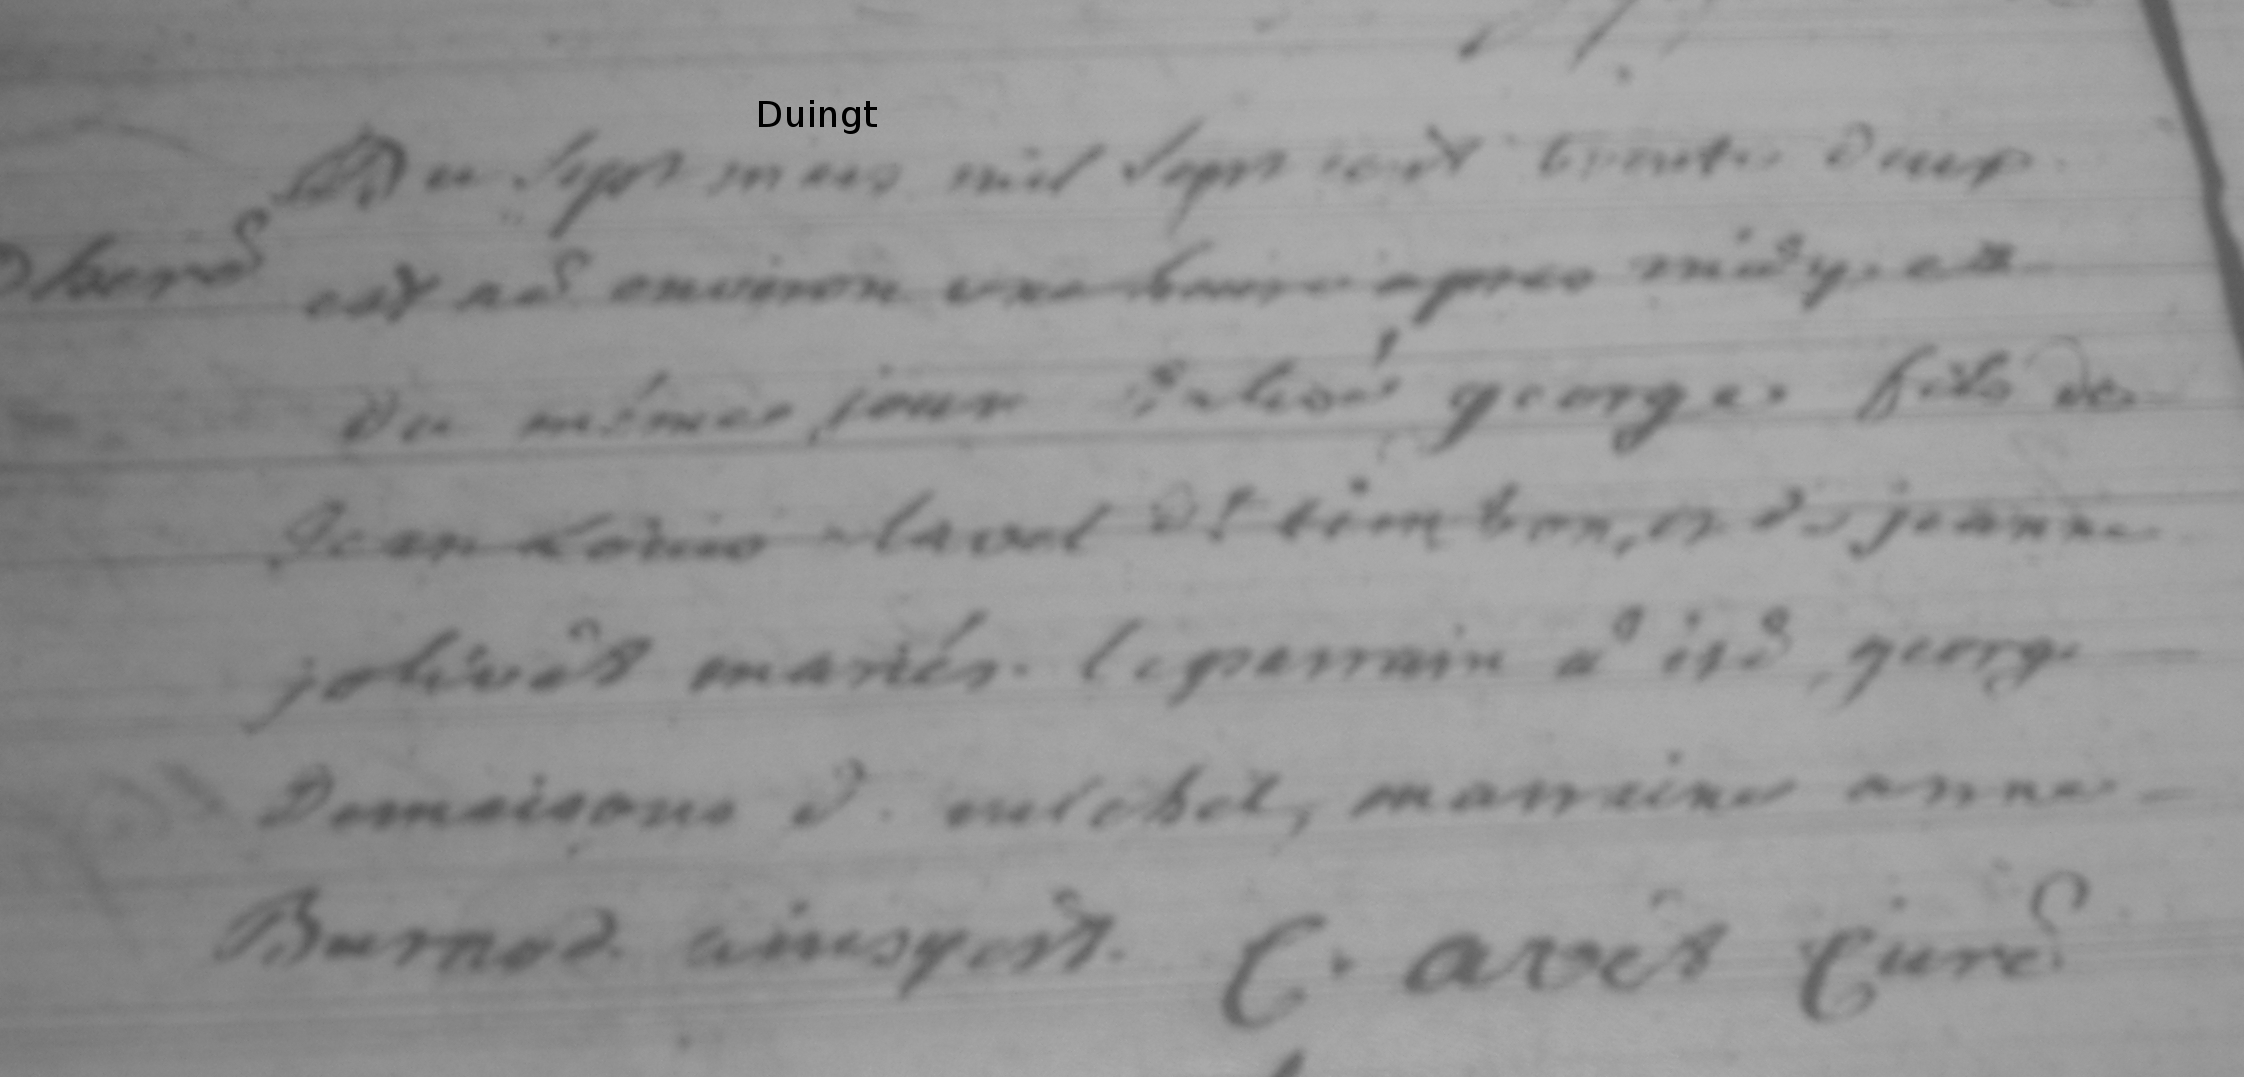 Duingt
Du sept mars mil sept cent trente deux
est né environ une heure apres midy, et
du même jour batisé george fils de
Jean Louis Lavol dt bimbon, et de jeanne
jolivèt mariés. le parrain a été, george
Domaisons d. vulchet, marraine anne
Burnod. ainsy est. C. avèt Curé